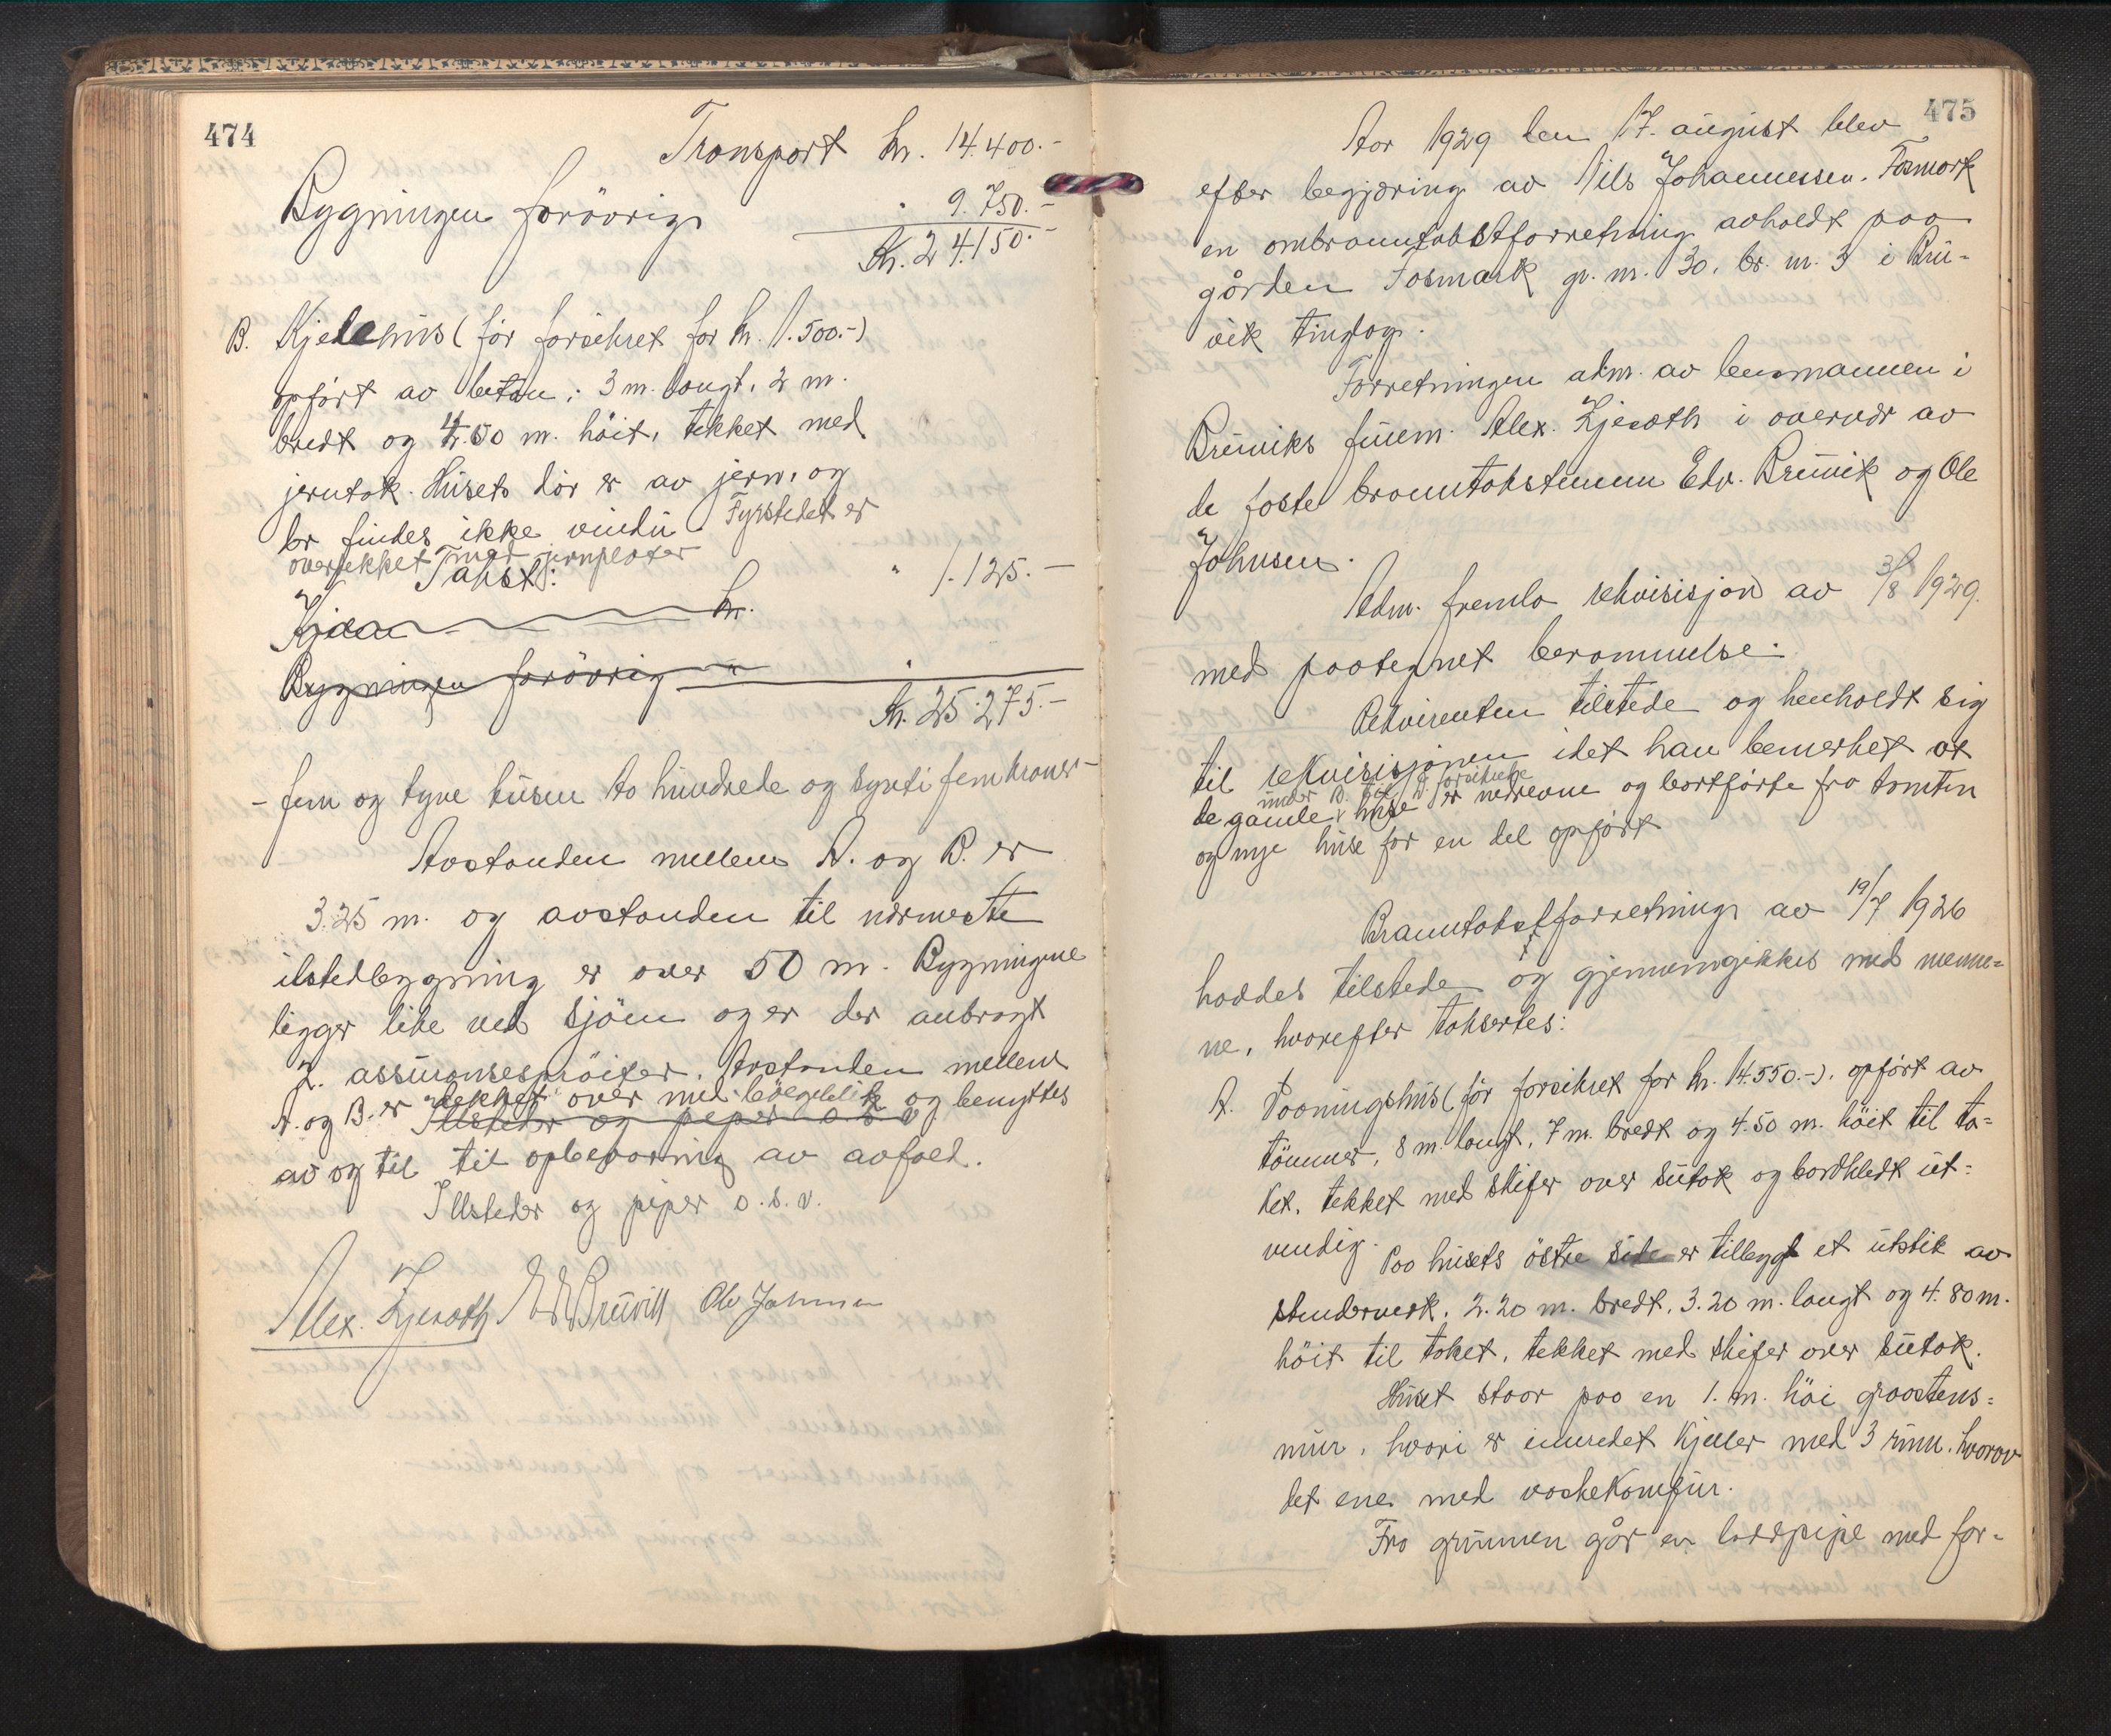 474
Transport kr. 14.400.-
Bygningen forövrig " 9.750.-
Kr. 24.150.-
B. Kjelehus (før forsikret for kr. 1.500.-)
opført av beton, 3 m. langt, 2 m.
bredt og 4.50 m. høit, tekket med
jerntak. Husets dør er av jern, og
der findes ikke vindu. Fyrstedet er
overtekket med jernplater
Takst: " 1.125.-
kr.
Bygningen forövrig "
Kr. 25.275.-
- fem og tyve tusen to hundrede og sytti fem kroner -
Avstanden mellem A. og B. er
3.25 m. og avstanden til nærmeste
ilstedbygning er over 50 m. Bygningene
ligger like ved sjøen og er der anbragt
2. assuransesprøiter. Avstanden mellem
A. og B. er tekket over med bølgeblik og benyttes
Illsteder og piper o.s.v
av og til til opbevaring av avfald.
Illsteder og piper o.s.v.
Alex. Gjesæth Edv Bruvik Ole Johnsen
475
Aar 1929 den 17. august blev
efter begjæring av Nils Johannessen Fosmark
en ombranntakstforretning avholdt paa
gården Fosmark gr. nr. 30, br. nr. 3 i Bru-
vik tinglag.
Forretningen adm. av lensmannen i
Bruviks fullm. Alex. Gjesæth i overvær av
de faste branntakstmenn Edv. Bruvik og Ole
Johnsen.
Adm. fremla rekvisisjon av 3/8 1929.
med paategnet berammelse.
Rekvirenten tilstede og henholdt sig
til rekvisisjonen idet han bemerket at
under B. til forsikrede
de gamle huse er nedrevne og bortførte fra tomten
og nye huse for en del opført
Branntakstforretning av 19/7 1926
haddes tilstede og gjennemgikkes med menne=
ne, hvorefter takseredes:
A. Vaaningshus (før forsikret for kr. 14.550.-), opført av
tømmer, 8 m. langt, 7 m. bredt og 4.50 m. høit til ta=
ket, tekket med skifer over sutak og bordkledt ut=
vendig. Paa husets østre side er tilbygt et utstik av
stenderverk, 2.20 m. bredt, 3.20 m. langt og 4.80 m.
høit til taket, tekket med skifer over sutak.
Huset staar paa en 1. m. høi graastens=
mur, hvori er innredet kjeller med 3 rum, hvorav
det ene med vaskekomfur.
Fra grunnen går en loddpipe med for=